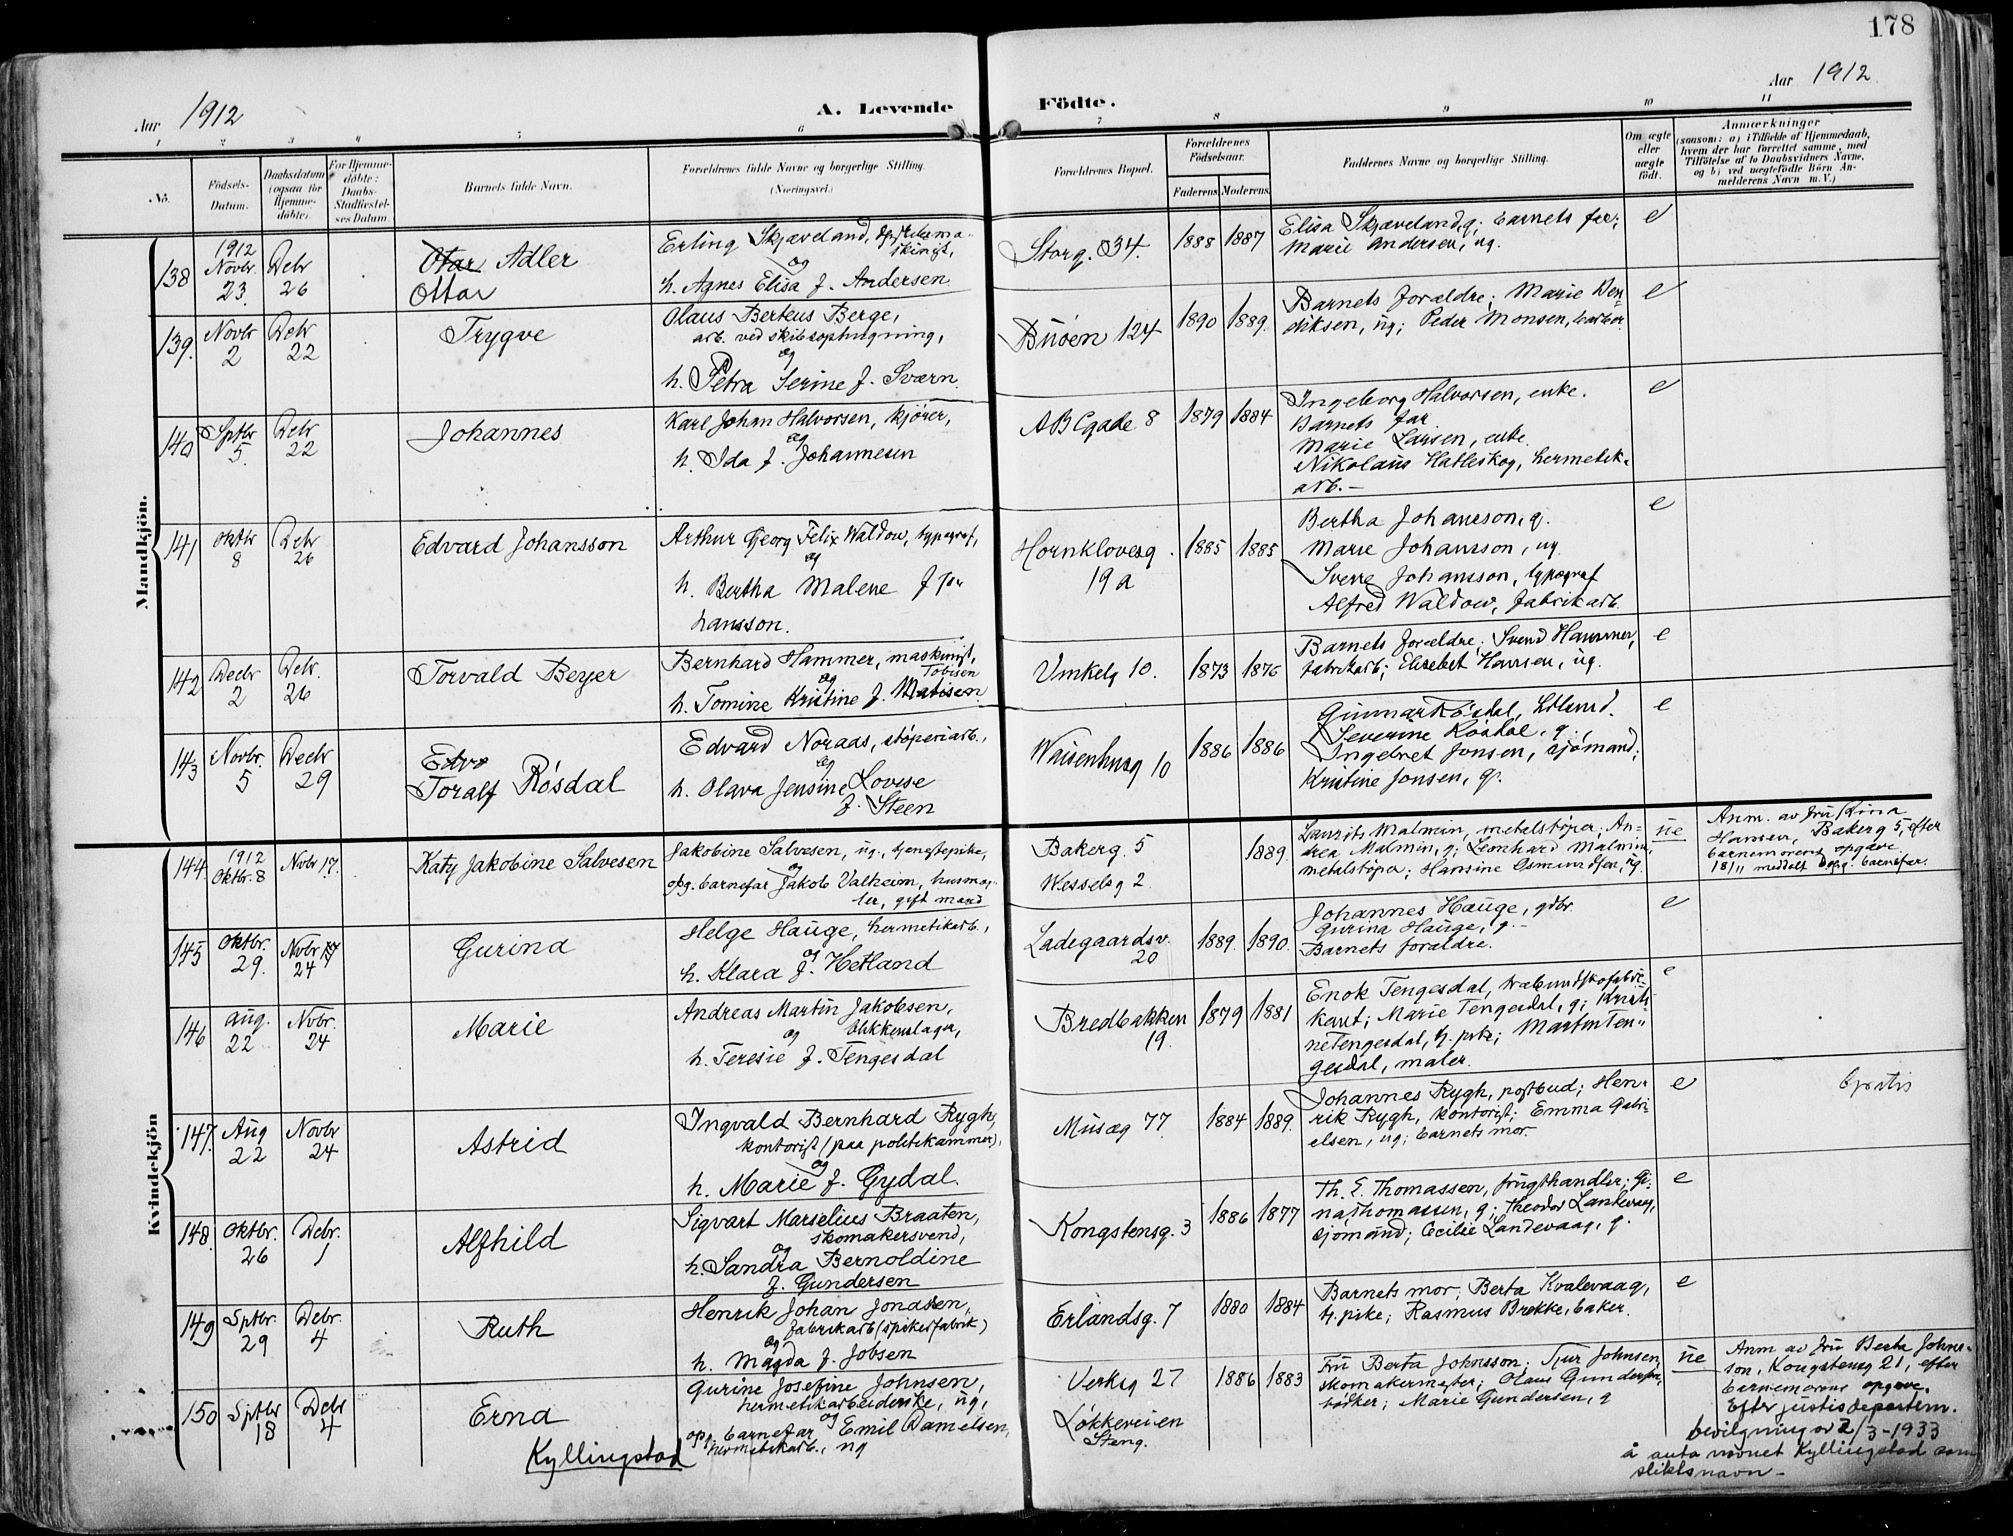 178
Aar 1912
A. Levende
Födte.
Aar 1912
1 2 3 4 5 6 7 8 9 10 11
No.
Födsels-
Datum.
Daabsdatum
(ogsaa for
Hjemme-
døbte).
For Hjemme-
döbte:
Daabs-
Stadfæstel-
ses Datum.
Barnets fulde Navn.
Forældrenes fulde Navne og borgerlige Stilling.
(Næringsvei.)
Forældrenes Bopæl.
Forældrenes
Födselsaar.
Faderens. Moderens.
Faddernes Navne og borgerlige Stilling.
Om ægte
eller
uægte
födt.
Anmærkninger
(saasom: a) i Tilfælde af Hjemmedaab,
hvem der har forrettet samme, med
Tilföielse af to Daabsvidners Navne,
og b) ved uægtefödte Börn An-
melderens Navn m. V.)
Mandkjön.
138
1912
Novbr.
23.
Debr
26
Otar Adler
Ottar
Erling Skjæveland,
og
h. Agnes Elisa f. Andersen
Storg. 34.
1888 1887
Elisa Skjæveland, g; Barnets far;
Marie Andersen, ug.
e
139.
Novbr
2
Debr
22
Trygve
Olaus Berteus Berge,
arb. ved skibsophugning,
og
h. Petra Serine f. Sværn
Buøen 124
1890 1889.
Barnets forældre; Marie Ben-
diksen, ug; Peder Monsen,
e
140
Sptbr
5.
Debr
22
Johannes
Karl Johan Halvorsen, kjører,
og
h. Ida f. Johannesen
ABCgade 8
1879 1884
Ingeborg Halvorsen, enke.
Barnets far
Marie Larsen, enke
Nikolaus Hatleskog, hermetik-
arb. –
e
141
Oktbr
8
Debr
26
Edvard Johansson
Arthur Georg Felix Waldow, typograf,
og
h. Bertha Malene f Jo-
hansson.
Hornklovesg.
19a
1885 1885
Bertha Johansson, g.
Marie Johansson, ug.
Sverre Johansson, typograf
Alfred Waldow, fabrikarb.
e
142
Decbr
2
Debr.
26
Torvald Beyer
Bernhard Hammer, maskinist,
og Tobisen
h. Tomine Kristine f. Matisen
Vinkelg 10.
1873 1876
Barnets forældre; Svend Hammer,
fabrikarb; Elisebet Hansen, ug.
e
143
Novbr.
5
Decbr
29
Edv
Toralf Røsdal
Edvard Noraas, støperiarb.,
og
h. Olava Jensine Lovise
f. Steen
Waisenhusg 10
1886 1886
Gunnar Røsdal,
Severine Røsdal, g.
Ingebret Jonsen, sjømand;
Kristine Jonsen, g.
e
Kvindekjön
144
1912
Oktbr. 8
Novbr 17.
Katy Jakobine Salvesen
Jakobine Salvesen, ug., tjenestepike,
og
opg. barnefar Jakob Valheim, husma-
ler, gift mand
Bakerg. 5
Wesselsg 2.
1889.
Laurits Malmin, metalstøper; An-
drea Malmin, g; Leonhard Malmin,
metalstøper; Hansine Osmundsen, ug.
ue
Anm. av fru Lina
Hansen, Bakerg 5, efter
barnemorens opgave.
18/11 meddelt opg. barnefar.
145
Oktbr.
29.
Novbr 17
24
Gurina
Helge Hauge, hermetikarb.,
og
h. Klara f. Hetland
Ladegaardsv.
20
1889. 1890.
Johannes Hauge, gdbr
Gurina Hauge, g. –
Barnets forældre.
e
146
Aug.
22
Novbr.
24
Marie
Andreas Martin Jakobsen,
og blikkenslager,
h. Teresie f. Tengesdal
Bredbakken
19.
1879 1881
Enok Tengesdal, træbundskofabri-
kant; Marie Tengesdal, g; Kristi-
ne Tengesdal, tj. pike; Martin Ten-
gesdal, maler.
e
147.
Aug
22
Novbr
24
Astrid
Ingvald Bernhard Rygh,
kontorist (paa politikammer),
og
h. Marie f. Gydal.
Musæg 77.
1884 1889.
Johannes Rygh, postbud; Hen-
rik Rygh, kontorist; Emma Gabri-
elsen, ug; barnets mor.
e
Gratis
148.
Oktbr.
26
Debr.
1
Alfhild
Sigvart Marselius Braaten,
skomakersvend,
og
h. Sandra Bernoldine
f. Gundersen
Kongstensg. 3
1886 1877
Th. E. Thomassen, frugthandler; Gi-
na Thomassen, g; Theodor Landevaag,
sjømand; Cecilie Landevaag, g.
e
149
Sptbr.
29
Debr.
4
Ruth
Henrik Johan Jonassen,
fabrikarb (spikerfabrik)
og
h. Magda f. Jobsen
Erlandsg. 7
1880 1884
Barnets mor; Berta Kvalevaag,
tj. pike; Rasmus Brekke, baker.
e
150
Sptbr
18
Debr
4
Erna
Kyllingstad
Gurine Josefine Johnsen,
hermetikarbeiderske, ug,
og
opg. barnefar Emil Danielsen,
hermetikarb., ug
Verksg 27
Løkkeveien
Steng.
1886 1883
Fru Berta Johnsson; Sjur Johnsen,
skomakermester; Olaus Gundersen,
bødker; Marie Gundersen, g
ue
Anm av fru Berta Johns-
son, Kongstensg 21, efter
barnemorens opgave.
Efter justisdepartem.
bevilgning av 2/3-1933
å anta navnet Kyllingstad som
slektsnavn –